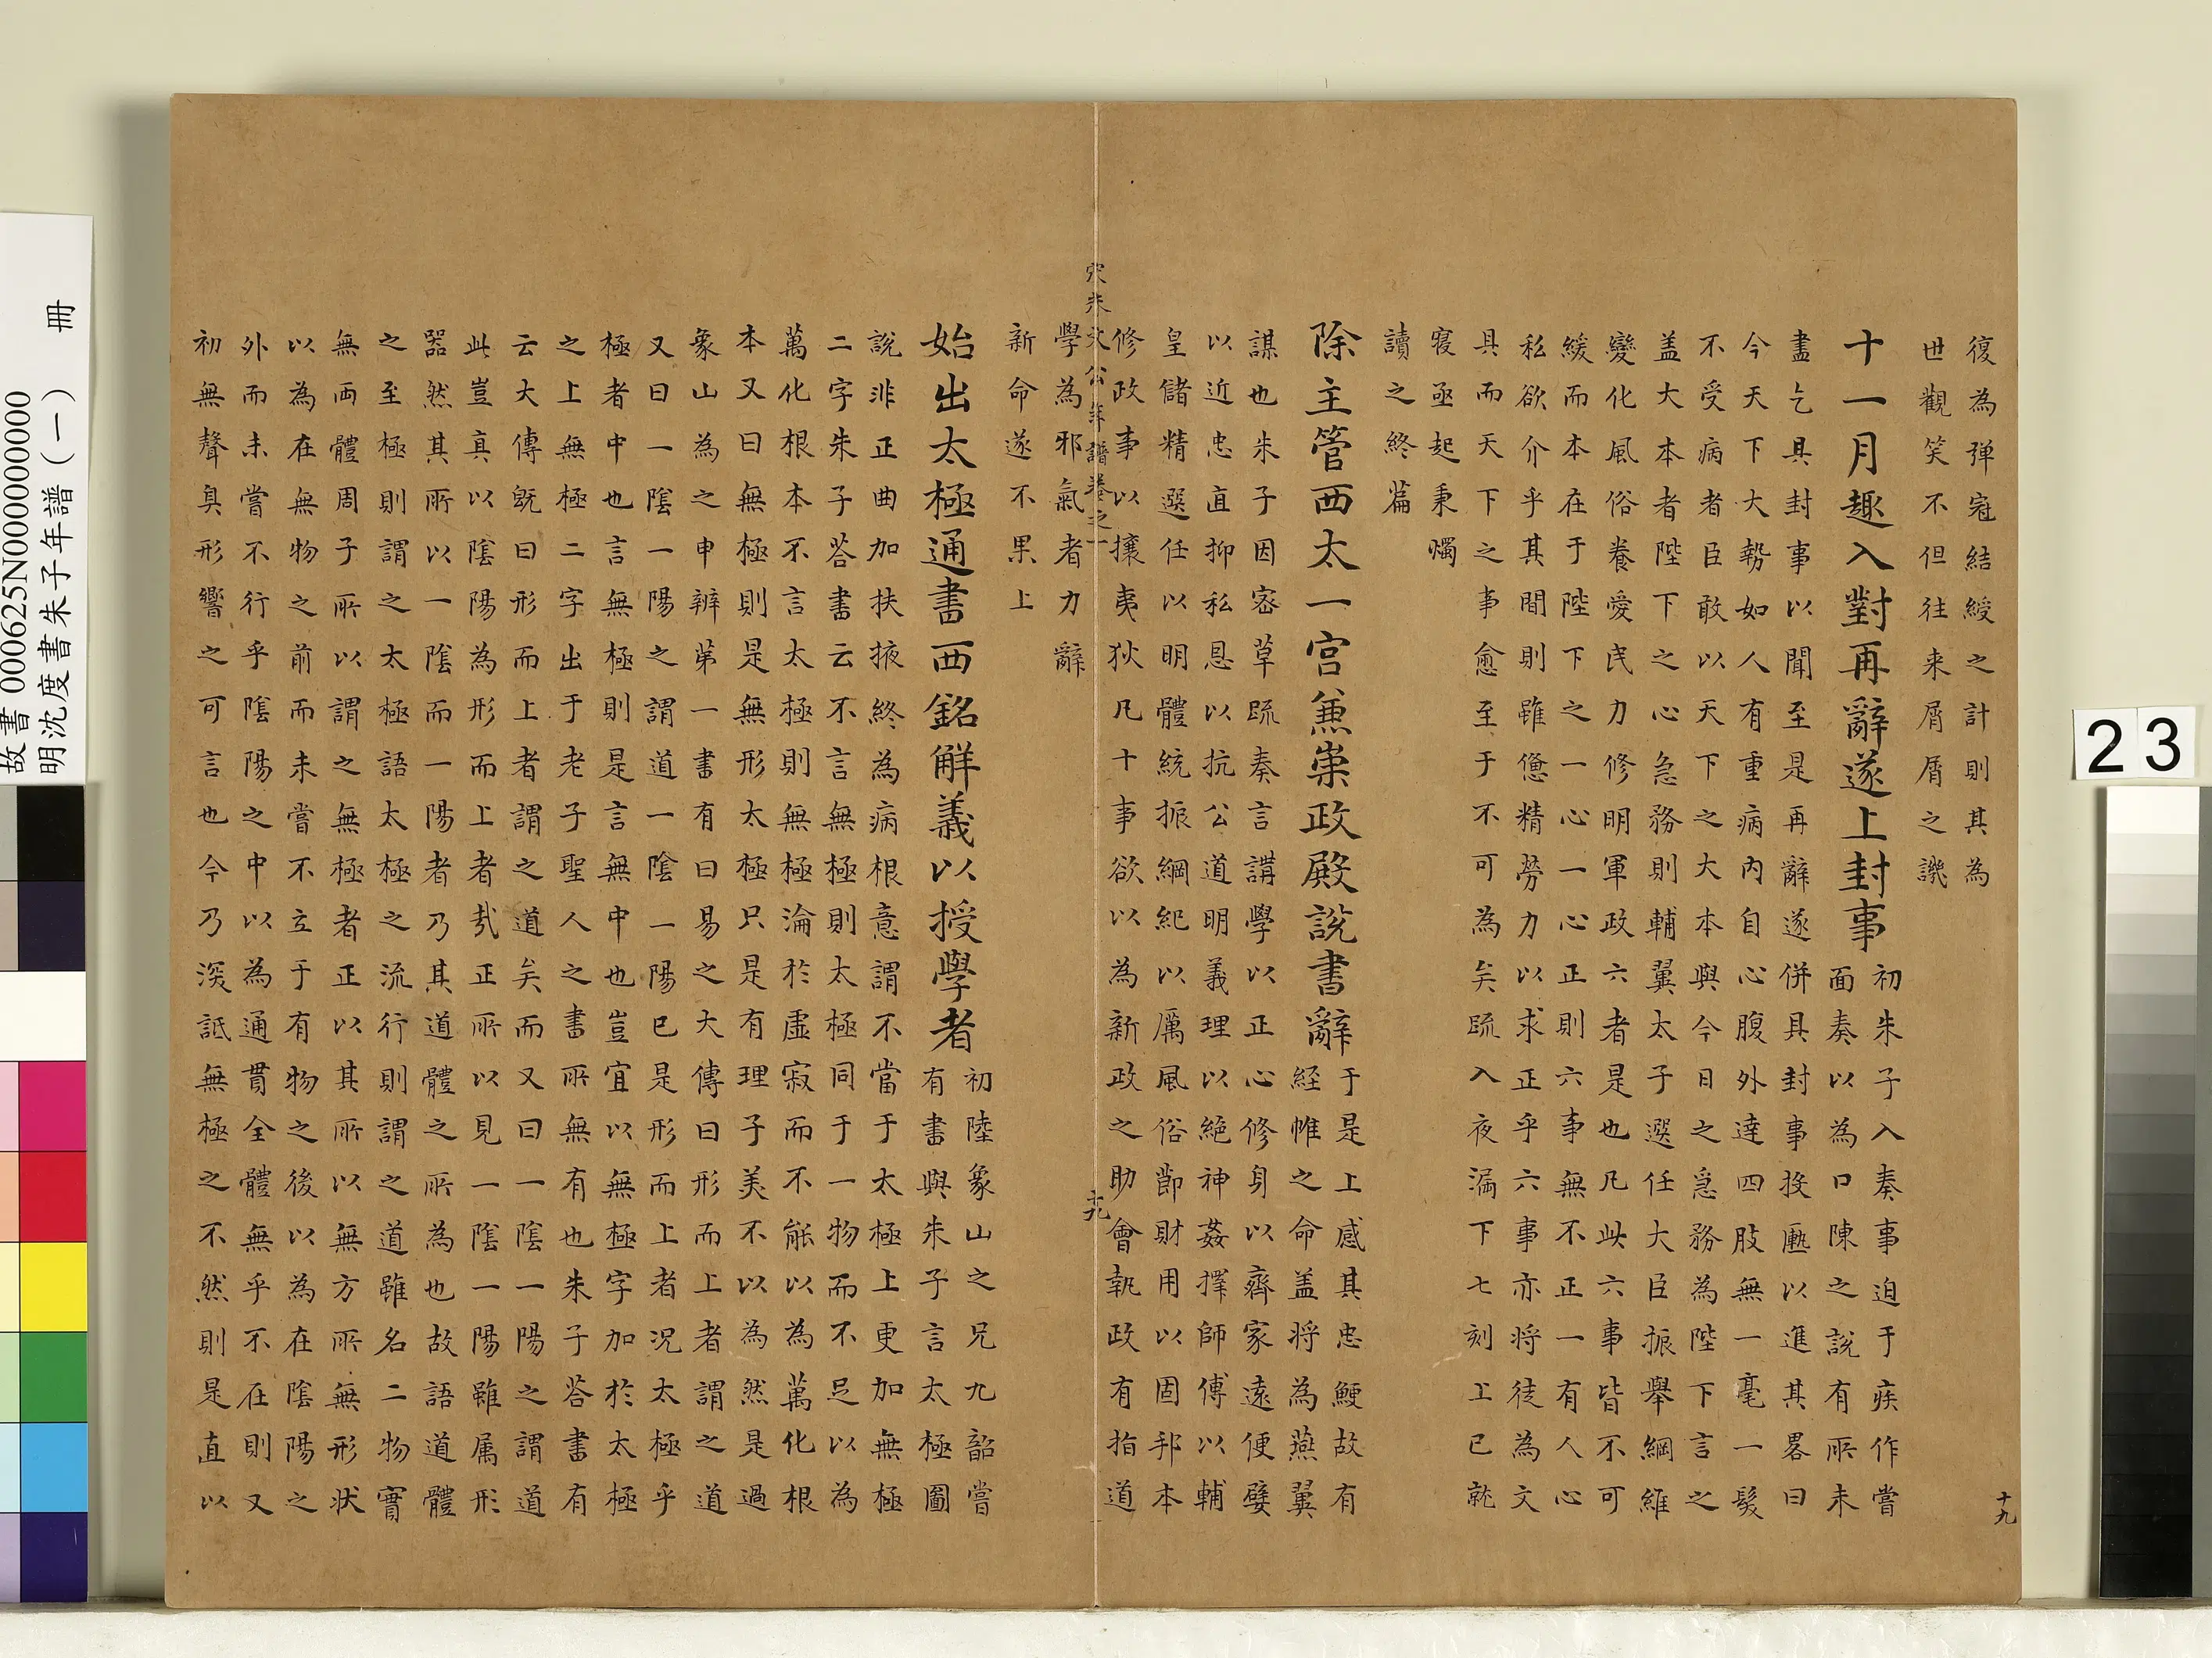 復為弹冦結綬之計則其為
世觀笑不但往来屑屑之譏
十一月趣入對再辭遂上封事
初朱子入奏事迫于疾作嘗
面奏以為口陳之說有所未
盡乞具封事以聞至是再辭遂併具封事投匭以進其畧曰
今天下大勢如人有重病內自心腹外達四肢無一毫一髮
不受病者臣敢以天下之大本與今日之急務為陛下言之
盖大本者陛下之心急務則輔翼太子選任大臣振舉綱維
變化風俗養愛民力修明軍政六者是也凡此六事皆不可
緩而本在于陛下之一心一心正則六事無不正一有人心
私欲介乎其間則雖憊精勞力以求正乎六事亦将徒為文
具而天下之事愈至于不可為矣疏入夜漏下七刻上已就
寝亟起秉燭
讀之終篇
除主管西太一宮兼崇政殿說書辭
于是上感其忠鯁故有
経帷之命盖将為燕翼
謀也朱子因密草疏奏言講學以正心修身以齊家遠便嬖
以近忠直抑私恩以抗公道明義理以絕神姦擇師傅以輔
皇儲精選任以明體統振綱紀以厲風俗節財用以固邦本
修政事以攘夷狄凡十事欲以為新政之助會執政有指道
宋朱文公年譜卷之一
十九
學為邪氣者力辭
新命遂不果上
始出太極通書西銘解義以授學者
初陸象山之兄九韶嘗
有書與朱子言太極圖
說非正曲加扶掖終為病根意謂不當于太極上更加無極
二字朱子荅書云不言無極則太極同于一物而不足以為
萬化根本不言太極則無極淪於虛寂而不能以為萬化根
本又曰無極則是無形太極只是有理子美不以為然是過
象山為之申辨第一書有曰易之大傳曰形而上者謂之道
又曰一陰一陽之謂道一陰一陽已是形而上者况太極乎
極者中也言無極則是言無中也豈宜以無極字加於太極
之上無極二字出于老子聖人之書所無有也朱子荅書有
云大傳既曰形而上者謂之道矣而又曰一陰一陽之謂道
此豈真以陰陽為形而上者㢤正所以見一陰一陽雖属形
器然其所以一陰而一陽者乃其道體之所為也故語道體
之至極則謂之太極語太極之流行則謂之道雖名二物實
無两體周子所以謂之無極者正以其所以無方所無形状
以為在無物之前而未嘗不立于有物之後以為在陰陽之
外而未嘗不行乎陰陽之中以為通貫全體無乎不在則又
初無聲臭形響之可言也今乃深詆無極之不然則是直以
十九
故書 000625N000000000
明沈度書朱子年譜(一) 冊
23